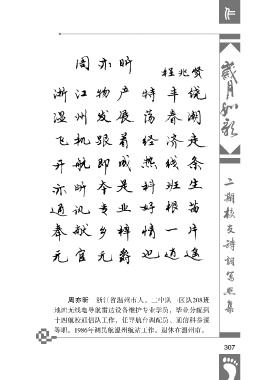 作
周亦昕
程兆贤
浙江物产特丰饶
温州发展荡春潮
飞机跟着经济走
开航即成热线条
亦昕本是科班生
通讯专业好根苗
奉献乡梓情一片
无官无爵迎逍遥
岁月如歌
二期校友诗词写照集
周亦昕 浙江省温州市人。二中队一区队208班
地面无线电导航雷达设备维护专业学员，毕业分配到
十四航校通信队工作，任导航台调配员、通信科参谋
等职。1986年调民航温州航站工作。退休在温州市。
307